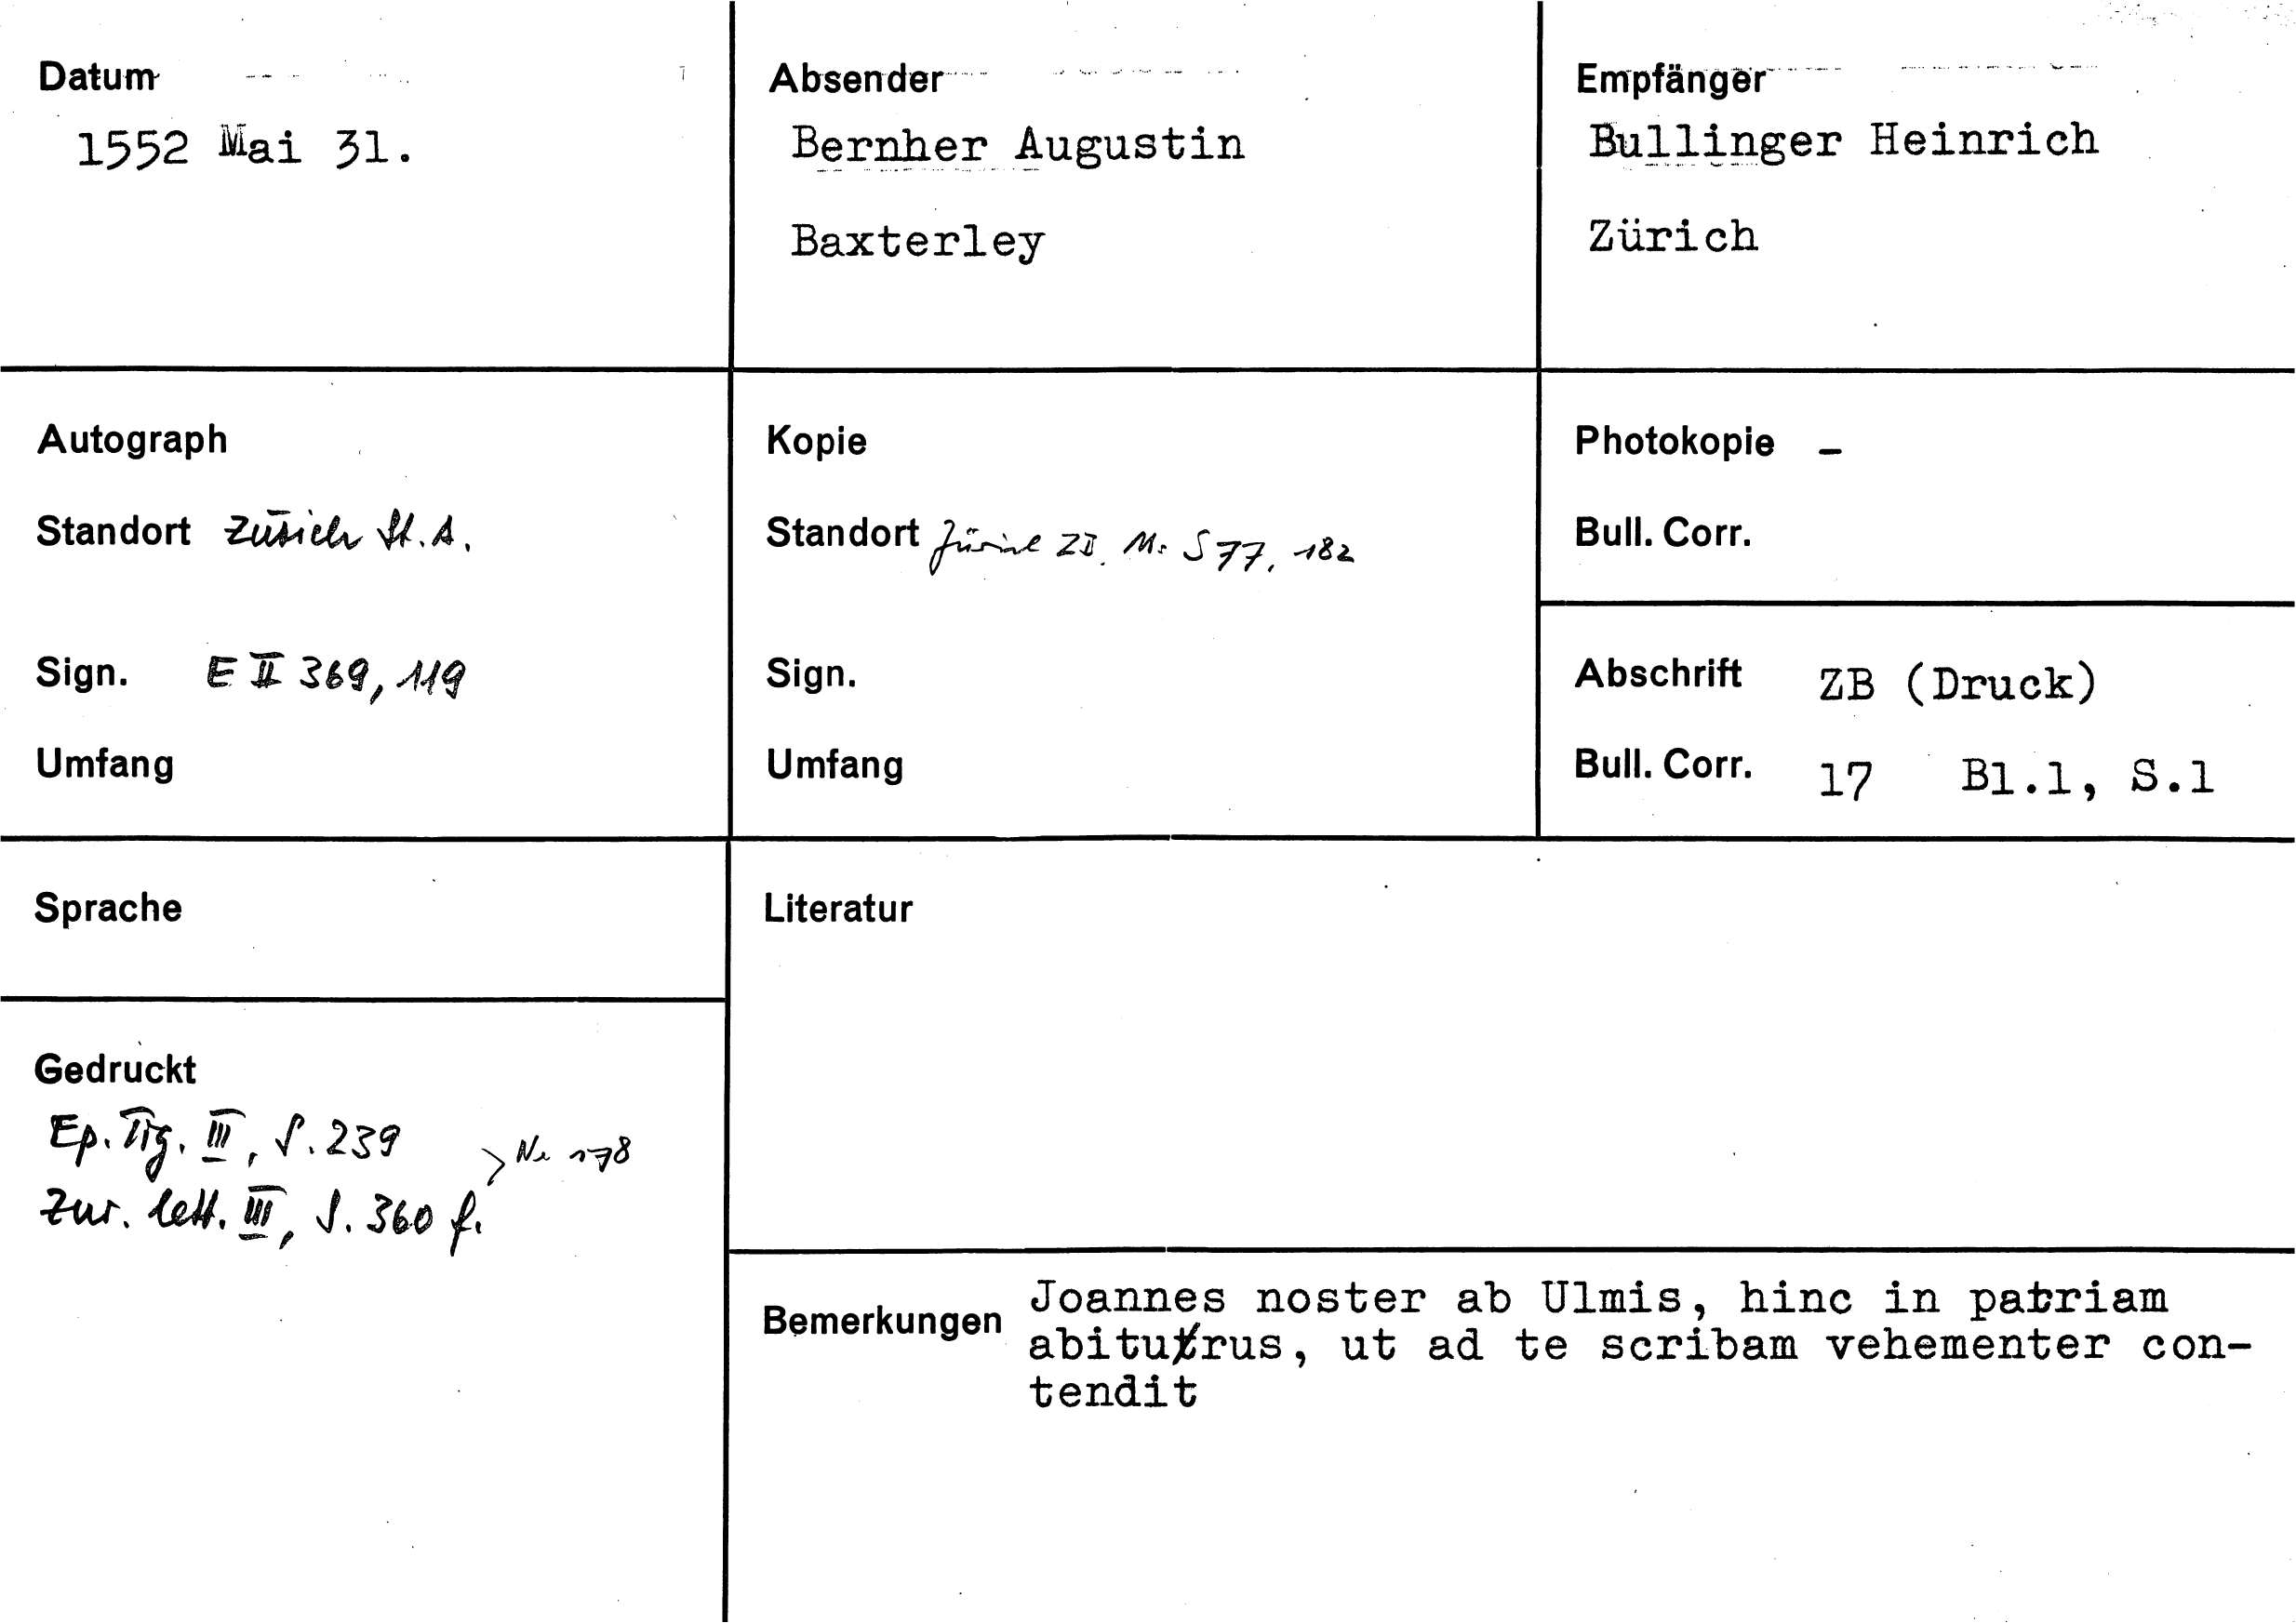 Datum
1552 Mai 31.
Absender
Bernher Augustin
Baxterley
Empfänger
Bullinger Heinrich
Zürich
Autograph
Standort Zürich St.A.
Sign. E II 369, 119
Umfang
Kopie
Standort Zürich ZB. Ms S 77, 182
Sign.
Umfang
Photokopie –
Bull. Corr.
Abschrift ZB (Druck)
Bull. Corr. 17 Bl.1, S.1
Sprache
Literatur
Gedruckt
Ep. Tig. III, S. 239
> Nr 178
Zur. lett. III, S. 360 f.
Bemerkungen Joannes noster ab Ulmis, hinc in patriam
abiturus, ut ad te scribam vehementer con-
tendit